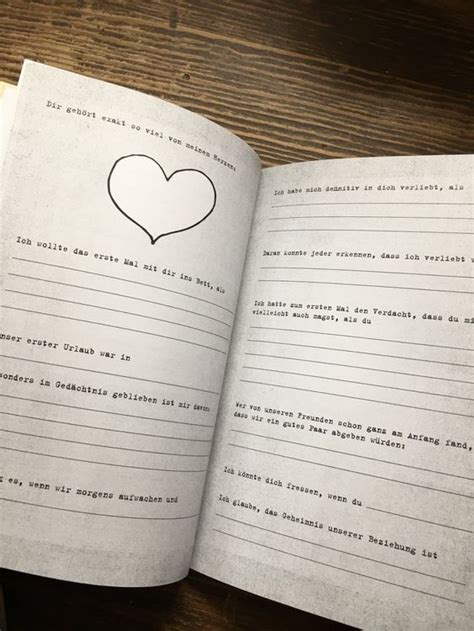 Dir gehört exakt so viel von meinem Herzen:
Ich wollte das erste Mal mit dir ins Bett, als
unser erster Urlaub war in
sonders im Gedächtnis geblieben ist mir davon:
es, wenn wir morgens aufwachen und
Ich habe mich definitiv in dich verliebt, als
Daran konnte jeder erkennen, dass ich verliebt
Ich hatte zum ersten Mal den Verdacht, dass du mi
vielleicht auch magst, als du
Wer von unseren Freunden schon ganz am Anfang fand,
dass wir ein gutes Paar abgeben würden:
Ich könnte dich fressen, wenn du
Ich glaube, das Geheimnis unserer Beziehung ist